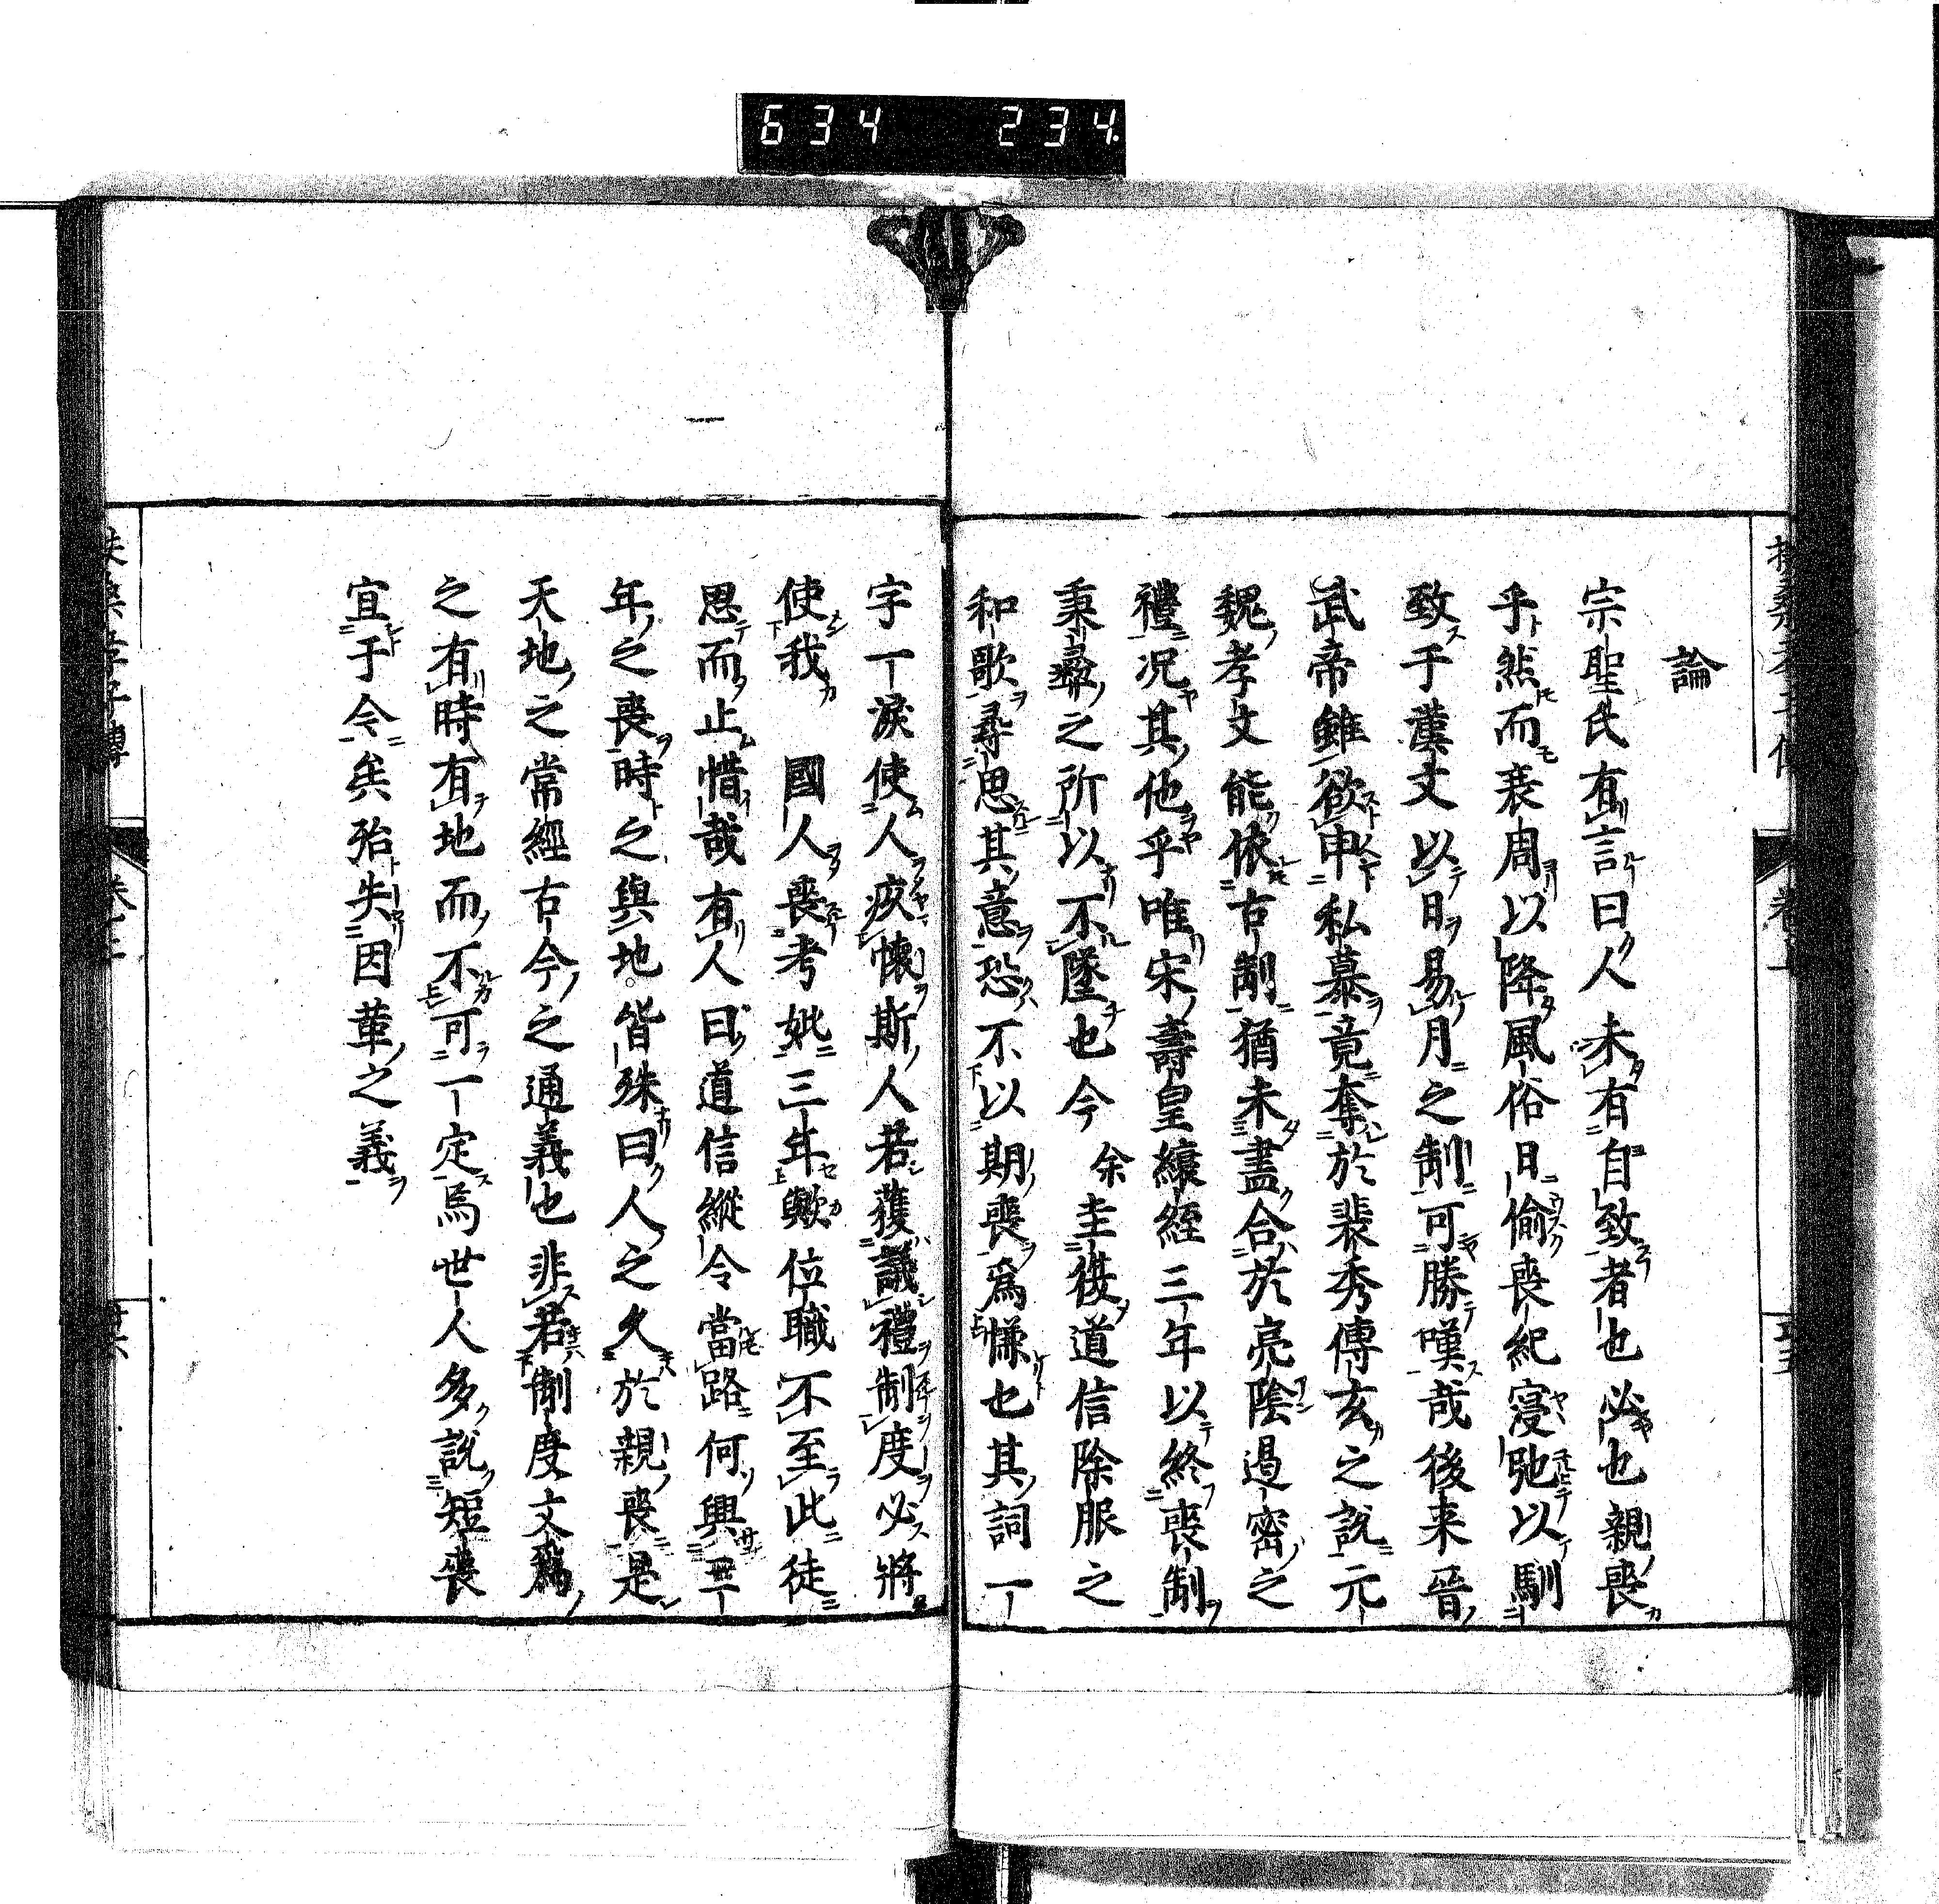 634 234
論
宗聖氏有言曰人未有自致者也必也親喪
乎然而衰周以降風俗日偷喪紀寖弛以馴
致于漢文以日易月之制可勝嘆哉後来晉
武帝雖欲申私慕竟奪於裴秀傅玄之説元
魏孝文能依古制猶未盡合於亮陰遏密之
禮况其他乎唯宋壽皇縗絰三年以終喪制
秉彝之所以不墜也今 余 圭復道信除服之
和歌尋思其意恐不以期喪爲慊也其詞一
字一涙使人疚懷斯人若獲議禮制度必將
使我 國人喪考妣三年歟位職不至此徒
思而止惜哉有人曰道信縱令當路何興三
年之喪時之與地皆殊曰人之久於親喪是
天地之常經古今之通義也非若制度文爲
之有時有地而不可一定焉世人多説短喪
宜于今矣殆失因革之義